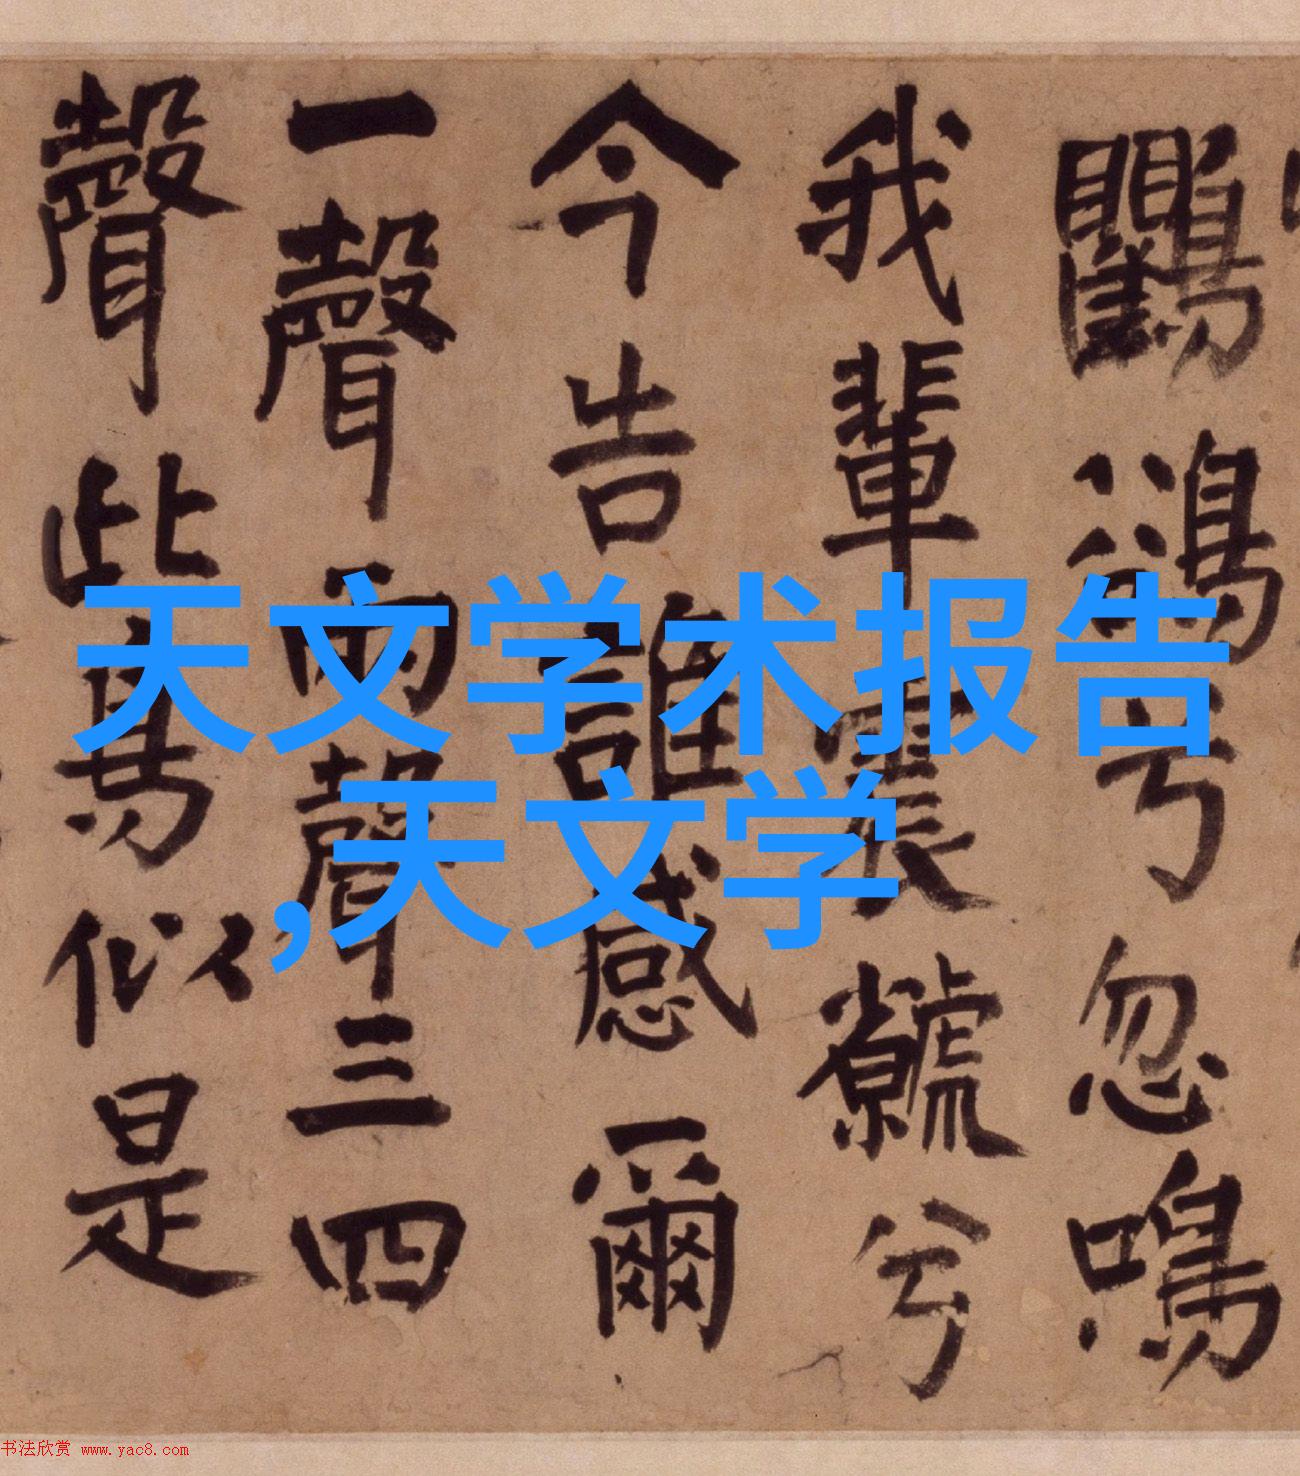 鸜鵒兮忽鳴
我輩震虩兮
今告誰感爾
一聲兩聲三四
聲此似是
天文学术报告
,天文学
书法欣赏 www.yac8.com